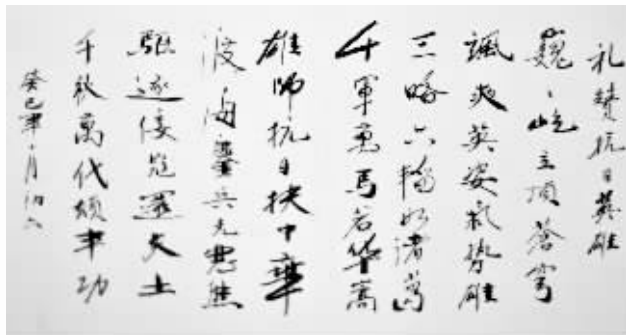 礼赞抗日英雄
巍巍屹立顶苍穹
飒爽英姿气势雄
三略六韬如诸葛
千军万马若华嵩
雄师抗日扶中华
渡海鏖兵先患熊
驱逐倭寇还大土
千秋万代颂丰功
癸巳年八月初六